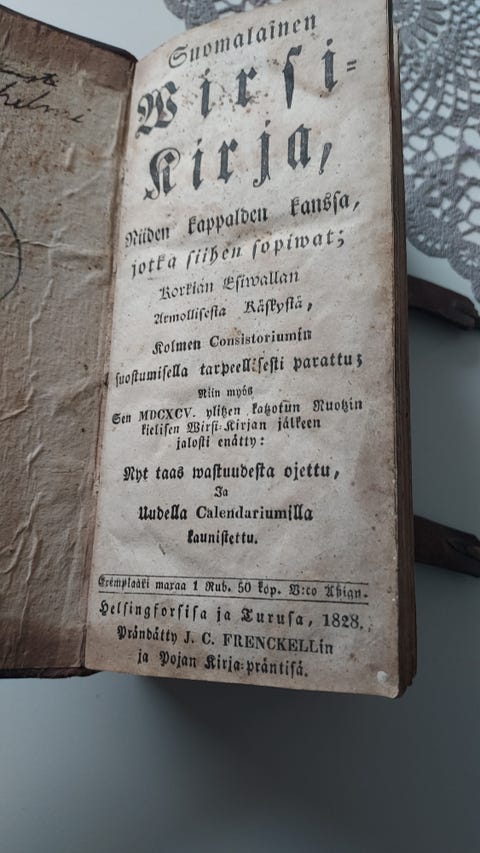 Suomalainen
Wirsi=
Kirja,
Niiden kappalden kanssa,
jotka siihen sopiwat;
Korkian Esiwallan
Armollisesta Käskystä,
Kolmen Consistoriumin
suostumisella tarpeellisesti parattu;
Niin myös
Sen MDCXCV. ylitzen katzotun Ruotzin
kielisen Wirsi=Kirjan jälkeen
jalosti enätty:
Nyt taas wastuudesta ojettu,
Ja
Uudella Calendariumilla
kaunistettu.
Exemplaaki maxaa 1 Rub. 50 kop. B:co Assign.
Helsingforsisa ja Turusa, 1828.
Prändätty J. C. FRENCKELLin
ja Pojan Kirja=präntisä.